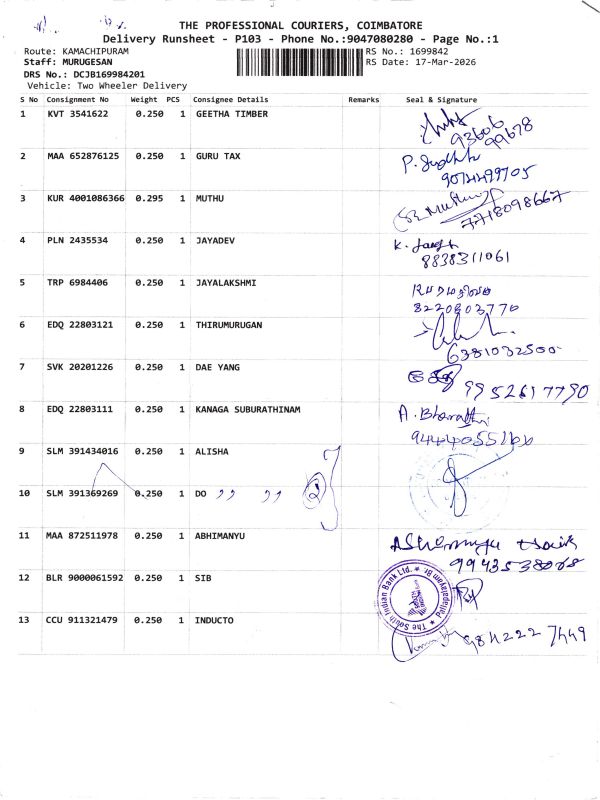 THE PROFESSIONAL COURIERS, COIMBATORE
Delivery Runsheet - P103 - Phone No.:9047080280 - Page No.:1
Route: KAMACHIPURAM
RS No.: 1699842
Staff: MURUGESAN
RS Date: 17-Mar-2026
DRS No.: DCJB169984201
Vehicle: Two Wheeler Delivery
S No Consignment No Weight PCS Consignee Details Remarks Seal & Signature
1 KVT 3541622 0.250 1 GEETHA TIMBER
93606
99678
2 MAA 652876125 0.250 1 GURU TAX
P.
3 KUR 4001086366 0.295 1 MUTHU
7718098667
4 PLN 2435534 0.250 1 JAYADEV
K.
8838311061
5 TRP 6984406 0.250 1 JAYALAKSHMI
8220803770
6 EDQ 22803121 0.250 1 THIRUMURUGAN
6381032500
7 SVK 20201226 0.250 1 DAE YANG
9952617790
8 EDQ 22803111 0.250 1 KANAGA SUBURATHINAM
A. Bharathi
9444055166
9 SLM 391434016 0.250 1 ALISHA
10 SLM 391369269 0.250 1 DO ,, ,, 2
11 MAA 872511978 0.250 1 ABHIMANYU
9943538068
12 BLR 9000061592 0.250 1 SIB
The South Indian Bank Ltd. * Pallapalayam Br. *
13 CCU 911321479 0.250 1 INDUCTO
984222 7449